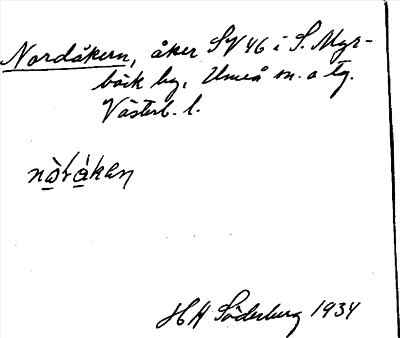 Nordåkern, åker SV 46 i S. Myr-
bäck by, Umeå sn. o tg.
Västerb. l.
nɷ̀ṛåkan
HA Söderberg 1934